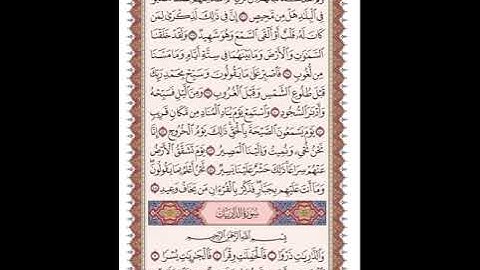 فِى ٱلْبِلَٰدِ هَلْ مِن مَّحِيصٍ ۝ إِنَّ فِى ذَٰلِكَ لَذِكْرَىٰ لِمَن
كَانَ لَهُۥ قَلْبٌ أَوْ أَلْقَى ٱلسَّمْعَ وَهُوَ شَهِيدٌ ۝ وَلَقَدْ خَلَقْنَا
ٱلسَّمَٰوَٰتِ وَٱلْأَرْضَ وَمَا بَيْنَهُمَا فِى سِتَّةِ أَيَّامٍ وَمَا مَسَّنَا
مِن لُّغُوبٍ ۝ فَٱصْبِرْ عَلَىٰ مَا يَقُولُونَ وَسَبِّحْ بِحَمْدِ رَبِّكَ
قَبْلَ طُلُوعِ ٱلشَّمْسِ وَقَبْلَ ٱلْغُرُوبِ ۝ وَمِنَ ٱلَّيْلِ فَسَبِّحْهُ
وَأَدْبَٰرَ ٱلسُّجُودِ ۝ وَٱسْتَمِعْ يَوْمَ يُنَادِ ٱلْمُنَادِ مِن مَّكَانٍ قَرِيبٍ
۝ يَوْمَ يَسْمَعُونَ ٱلصَّيْحَةَ بِٱلْحَقِّ ذَٰلِكَ يَوْمُ ٱلْخُرُوجِ ۝ إِنَّا
نَحْنُ نُحْىِۦ وَنُمِيتُ وَإِلَيْنَا ٱلْمَصِيرُ ۝ يَوْمَ تَشَقَّقُ ٱلْأَرْضُ
عَنْهُمْ سِرَاعًا ذَٰلِكَ حَشْرٌ عَلَيْنَا يَسِيرٌ ۝ نَّحْنُ أَعْلَمُ بِمَا يَقُولُونَ
وَمَآ أَنتَ عَلَيْهِم بِجَبَّارٍ فَذَكِّرْ بِٱلْقُرْءَانِ مَن يَخَافُ وَعِيدِ ۝
سُورَةُ الذَّارِيَاتِ
بِسْمِ ٱللَّهِ ٱلرَّحْمَٰنِ ٱلرَّحِيمِ
وَٱلذَّٰرِيَٰتِ ذَرْوًا ۝ فَٱلْحَٰمِلَٰتِ وِقْرًا ۝ فَٱلْجَٰرِيَٰتِ يُسْرًا ۝